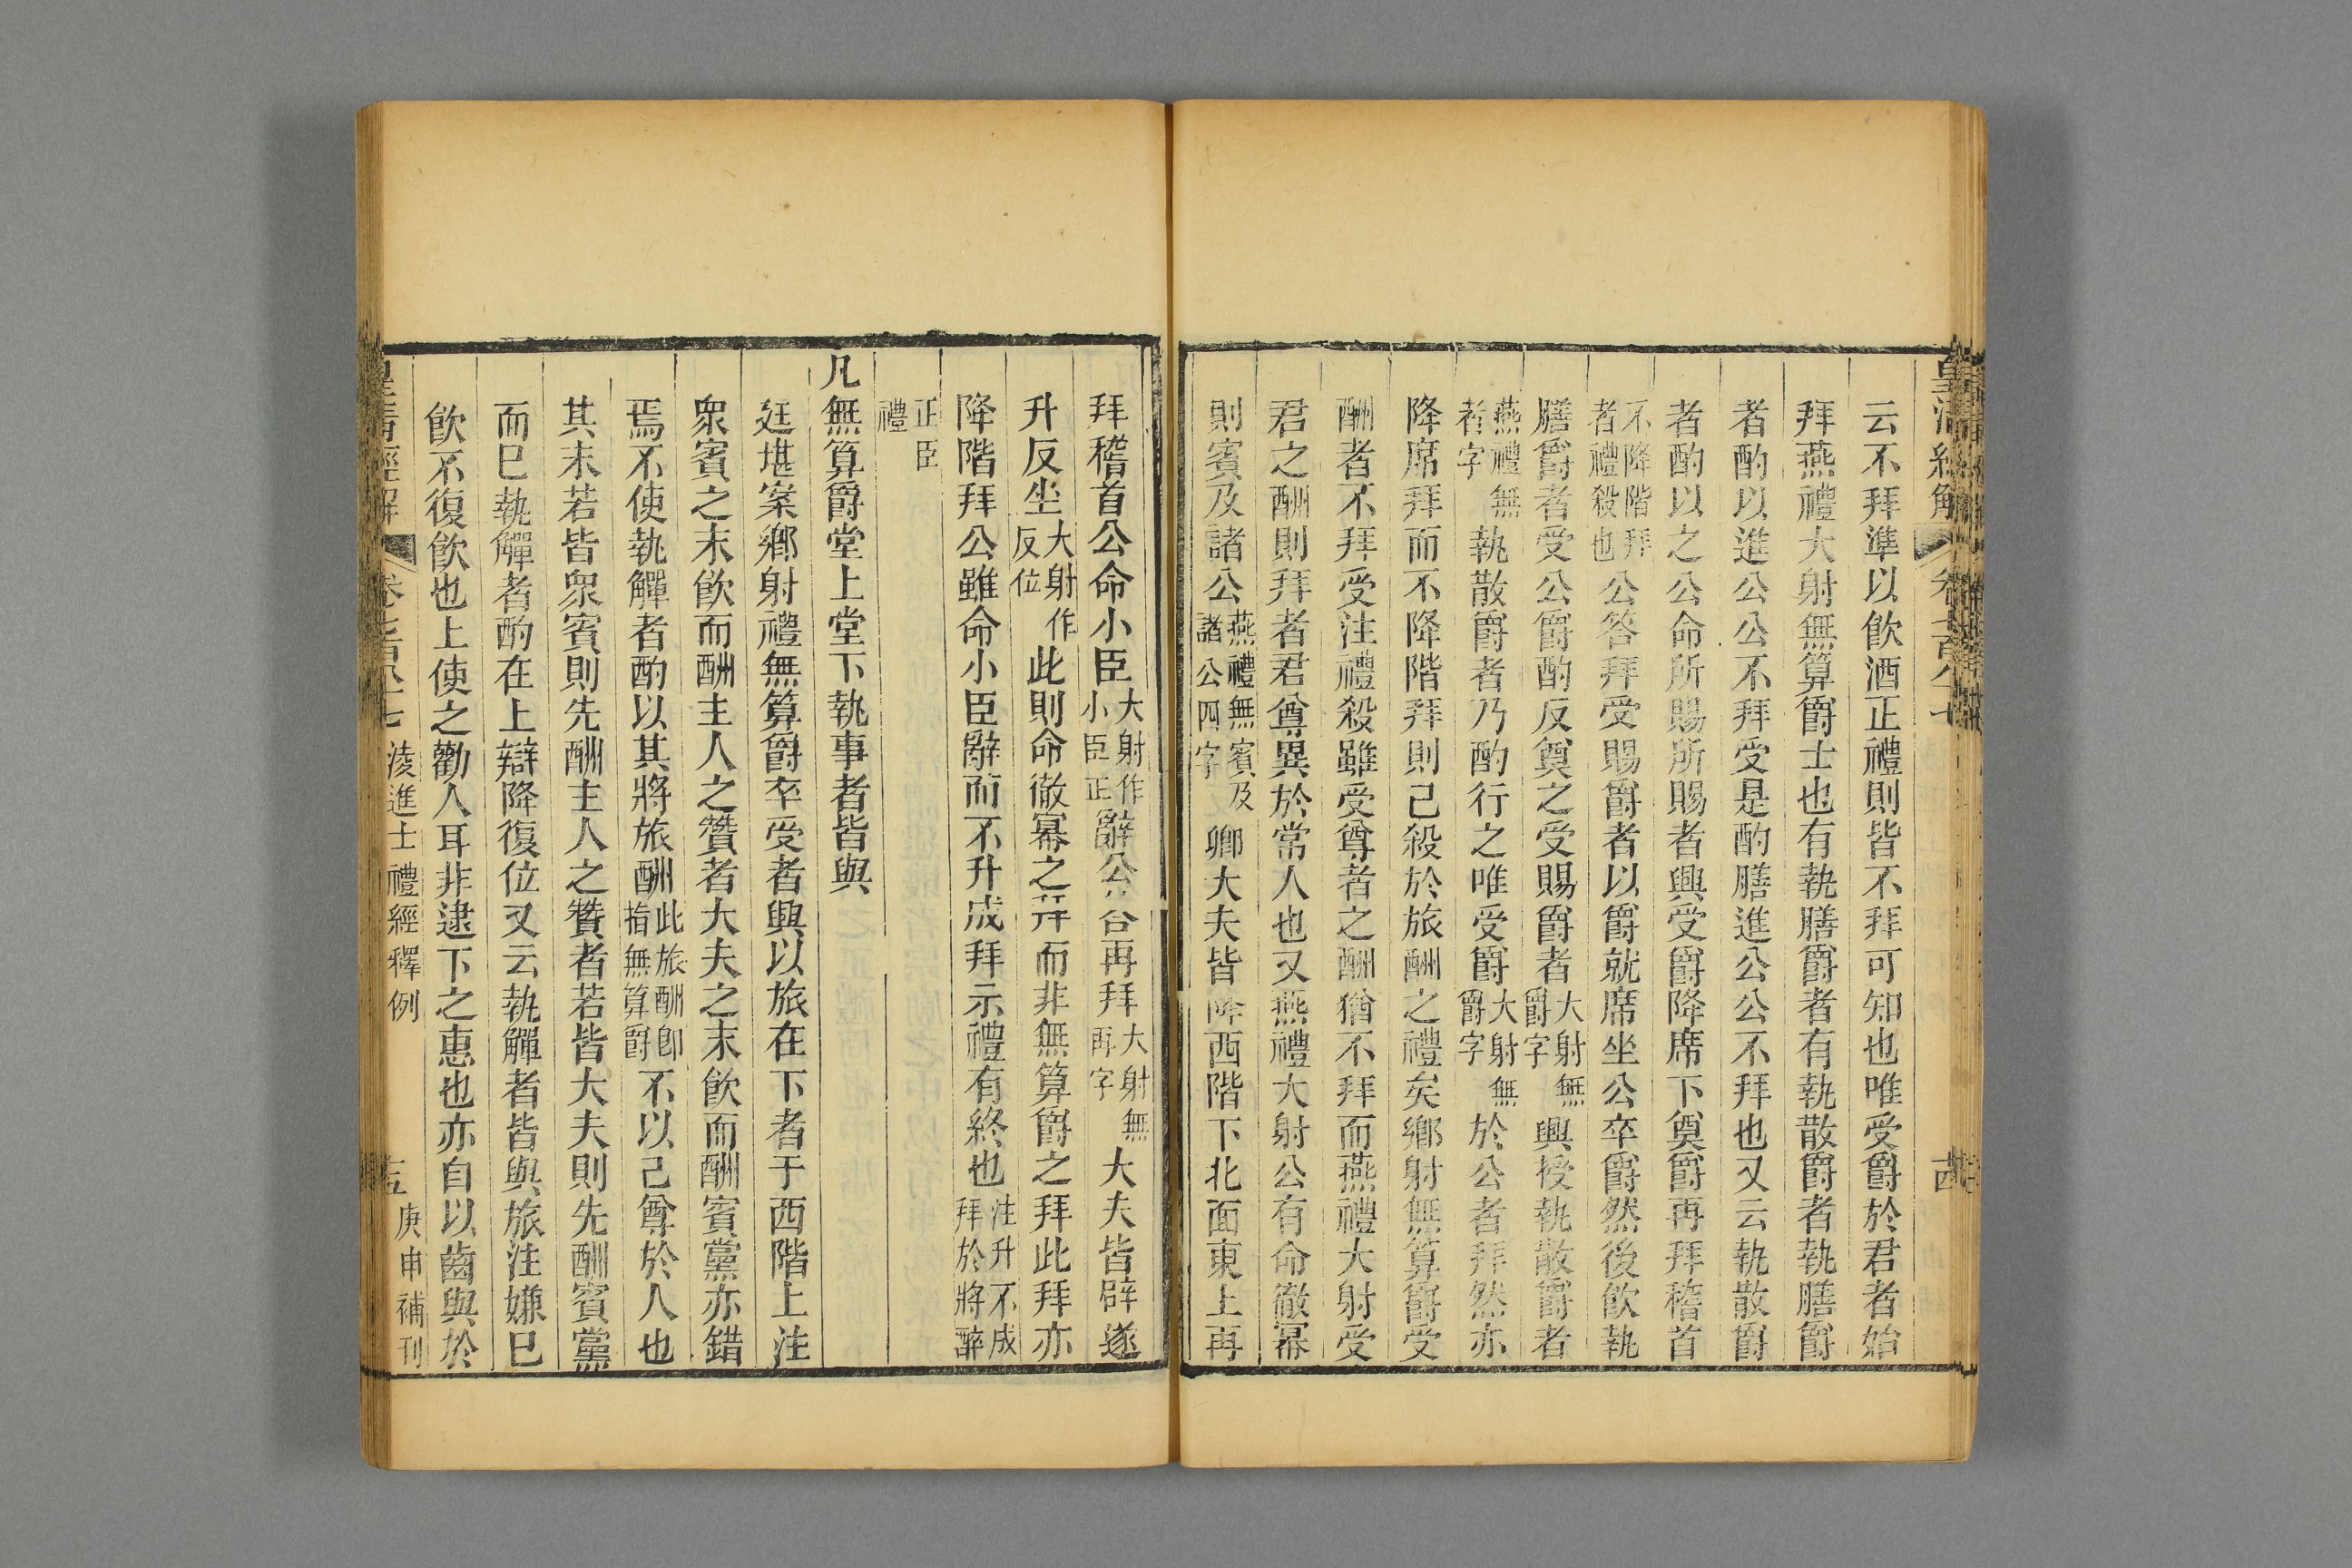 皇清經解 卷七百八十七 古
云不拜準以飲酒正禮則皆不拜可知也唯受爵於君者始
拜燕禮大射無算爵士也有執膳爵者有執散爵者執膳爵
者酌以進公公不拜受是酌膳進公公不拜也又云執散爵
者酌以之公命所賜所賜者興受爵降席下奠爵再拜稽首
不降階拜
者禮殺也
公答拜受賜爵者以爵就席坐公卒爵然後飲執
膳爵者受公爵酌反奠之受賜爵者
大射無
爵字
興授執散爵者
燕禮無
者字
執散爵者乃酌行之唯受爵
大射無
爵字
於公者拜然亦
降席拜而不降階拜則己殺於旅酬之禮矣鄉射無算爵受
酬者不拜受注禮殺雖受尊者之酬猶不拜而燕禮大射受
君之酬則拜者君尊異於常人也又燕禮大射公有命徹冪
則賓及諸公
燕禮無賓及
諸公四字
卿大夫皆降西階下北面東上再
拜稽首公命小臣
大射作
小臣正
辭公荅再拜
大射無
再字
大夫皆辟遂
升反坐
大射作
反位
此則命徹冪之拜而非無算爵之拜此拜亦
降階拜公雖命小臣辭而不升成拜示禮有終也
注升不成
拜於將醉
正臣
禮
凡無算爵堂上堂下執事者皆與
廷堪案鄉射禮無算爵卒受者興以旅在下者于西階上注
衆賓之末飲而酬主人之贊者大夫之末飲而酬賓黨亦錯
焉不使執觶者酌以其將旅酬
此旅酬卽
指無算爵
不以己尊於人也
其末若皆衆賓則先酬主人之贊者若皆大夫則先酬賓黨
而已執觶者酌在上辯降復位又云執觶者皆與旅注嫌已
飲不復飲也上使之勸人耳非逮下之惠也亦自以齒與於
皇清經解 卷七百八十七 淩進士禮經釋例 五 庚申補刊